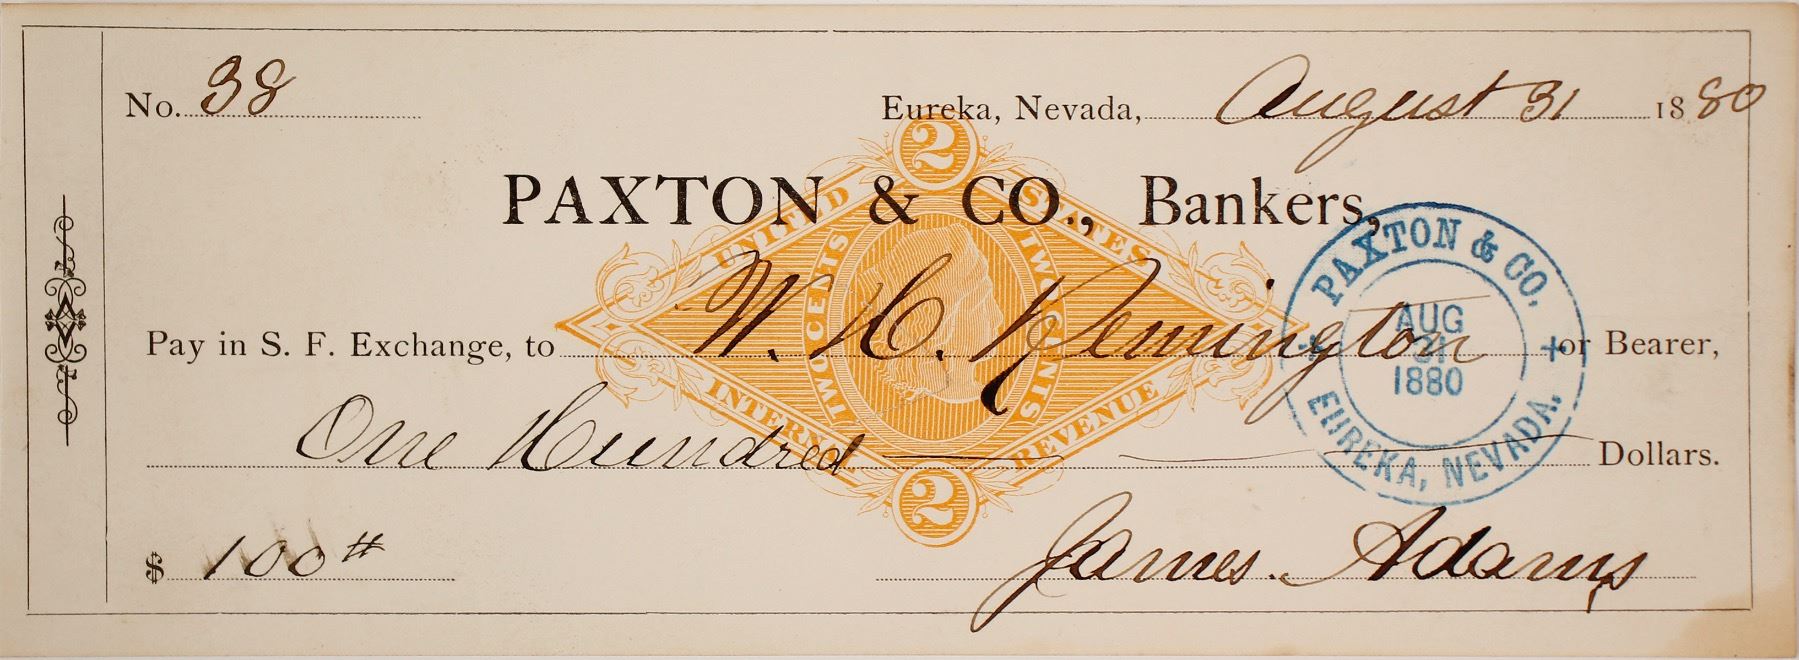 No. 38
Eureka, Nevada, August 31 1880
PAXTON & CO., Bankers,
Pay in S. F. Exchange, to W. H. Remington or Bearer,
One Hundred Dollars.
$ 100 #
James Adams
2
UNITED STATES
TWO CENTS
TWO CENTS
INTERNAL REVENUE
2
PAXTON & CO.
AUG
31
1880
EUREKA, NEVADA.